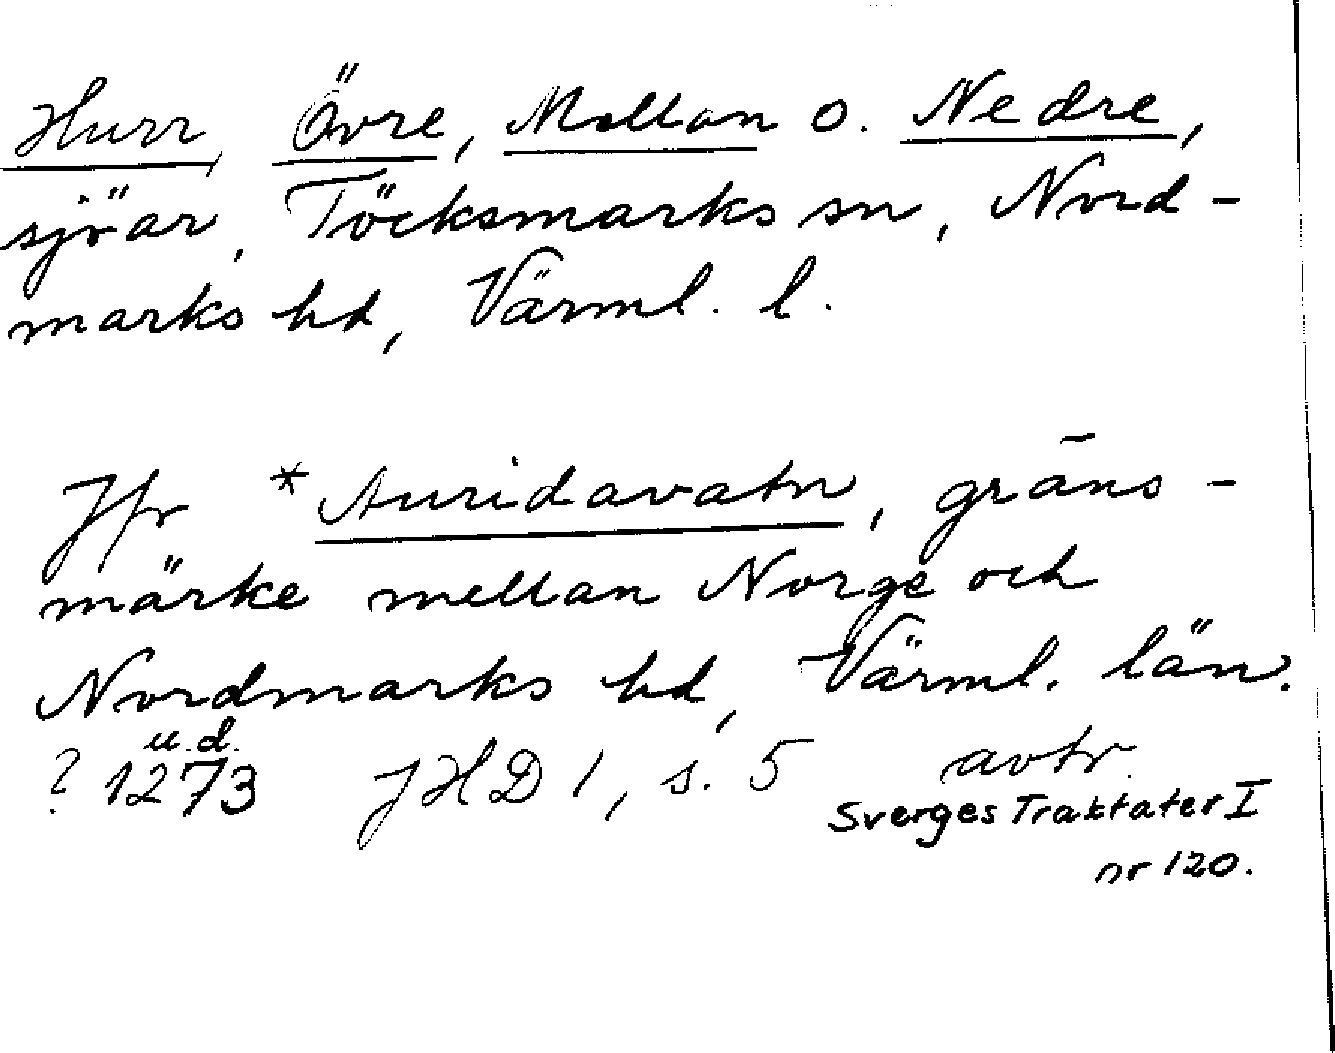 Hurr, Övre, Mellan o. Nedre,
sjöar, Töcksmarks sn, Nord-
marks hd, Värml. l.
Jfr *Auridavatn, gräns-
märke mellan Norge och
Nordmarks hd, Värml. län.
u.d.
? 1273 JHD 1, s. 5 avtr.
Sverges Traktater I
nr 120.